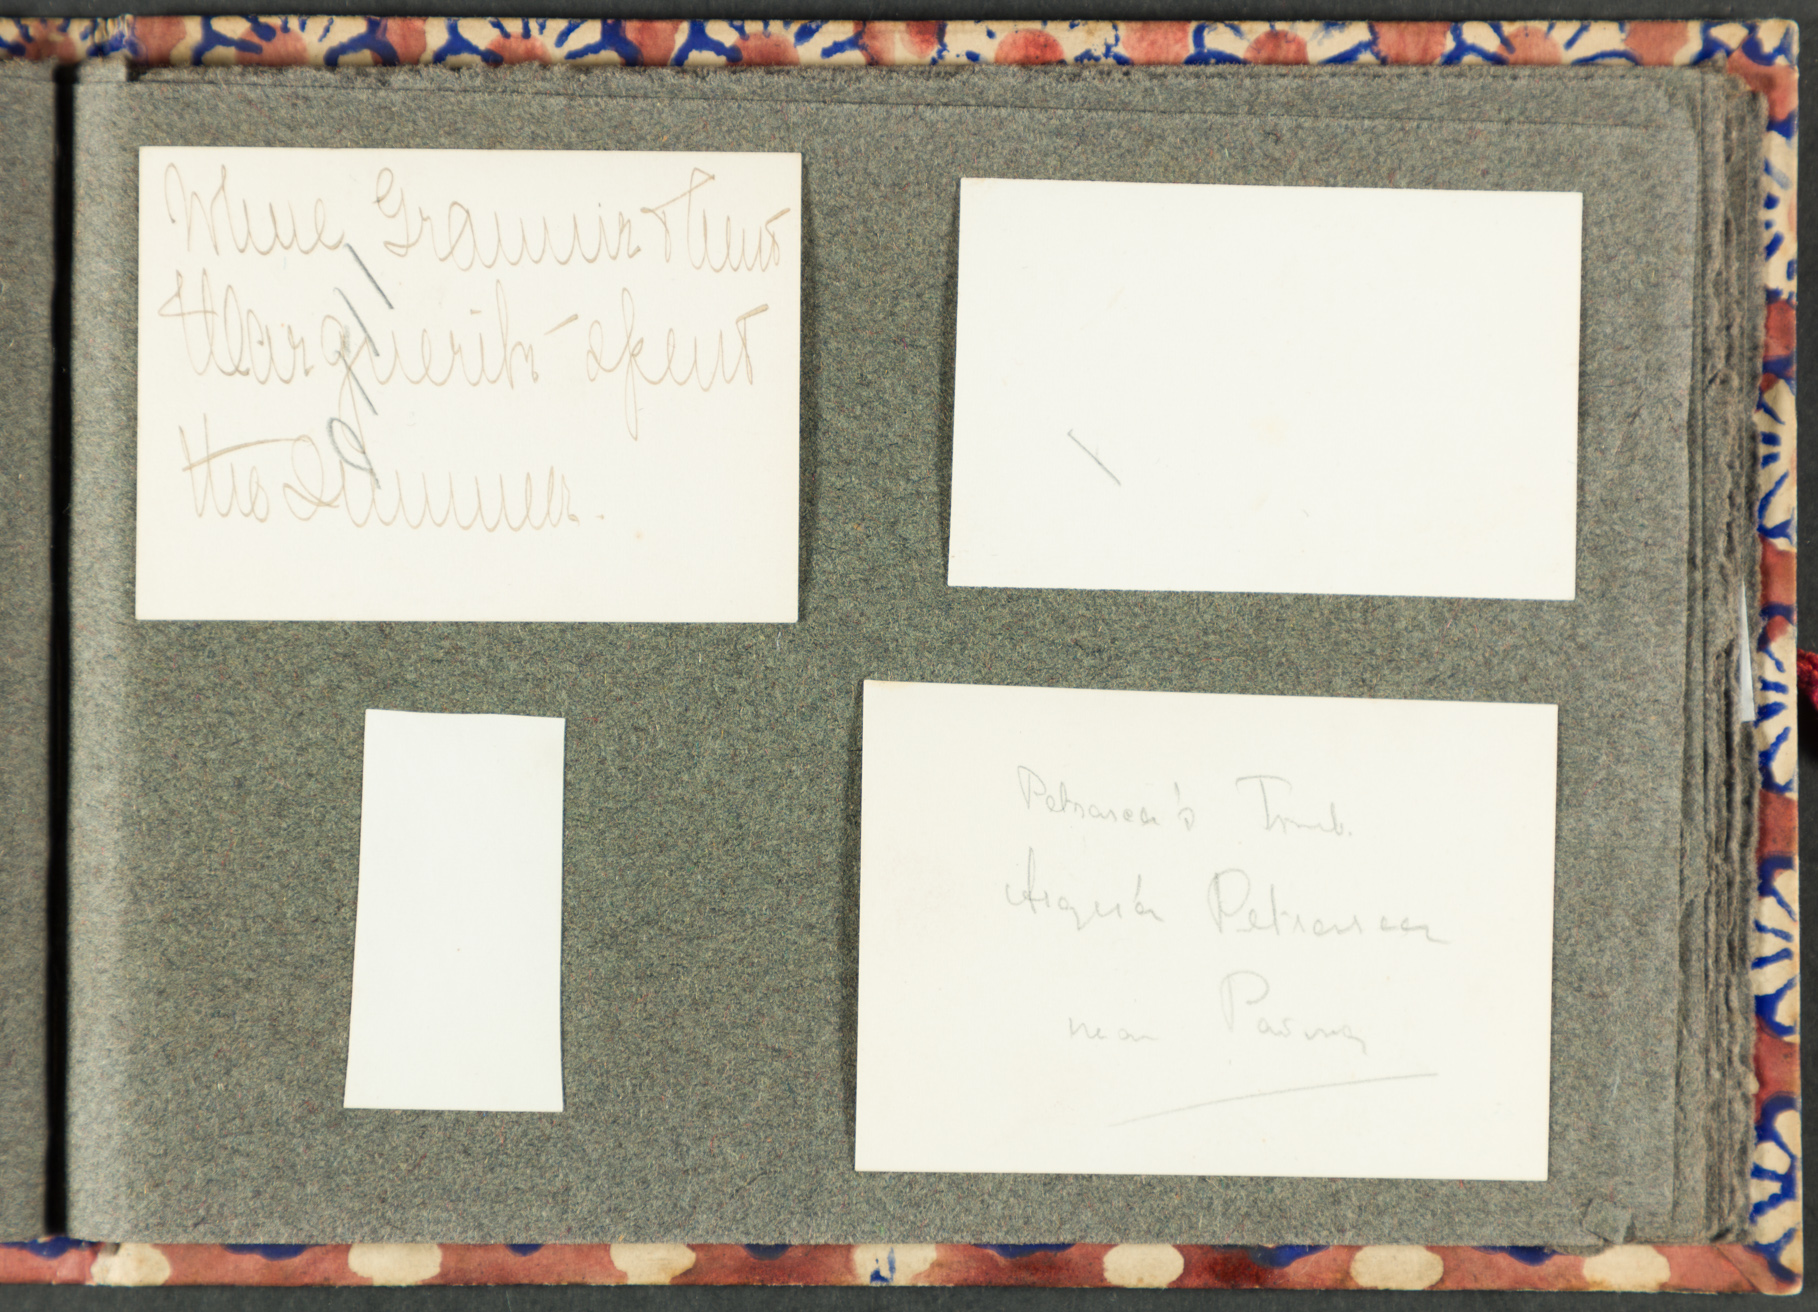 Where Grannie & Aunt
Marguerite spent
the Summer.
Petrarca's Tomb.
Arquà Petrarca
near